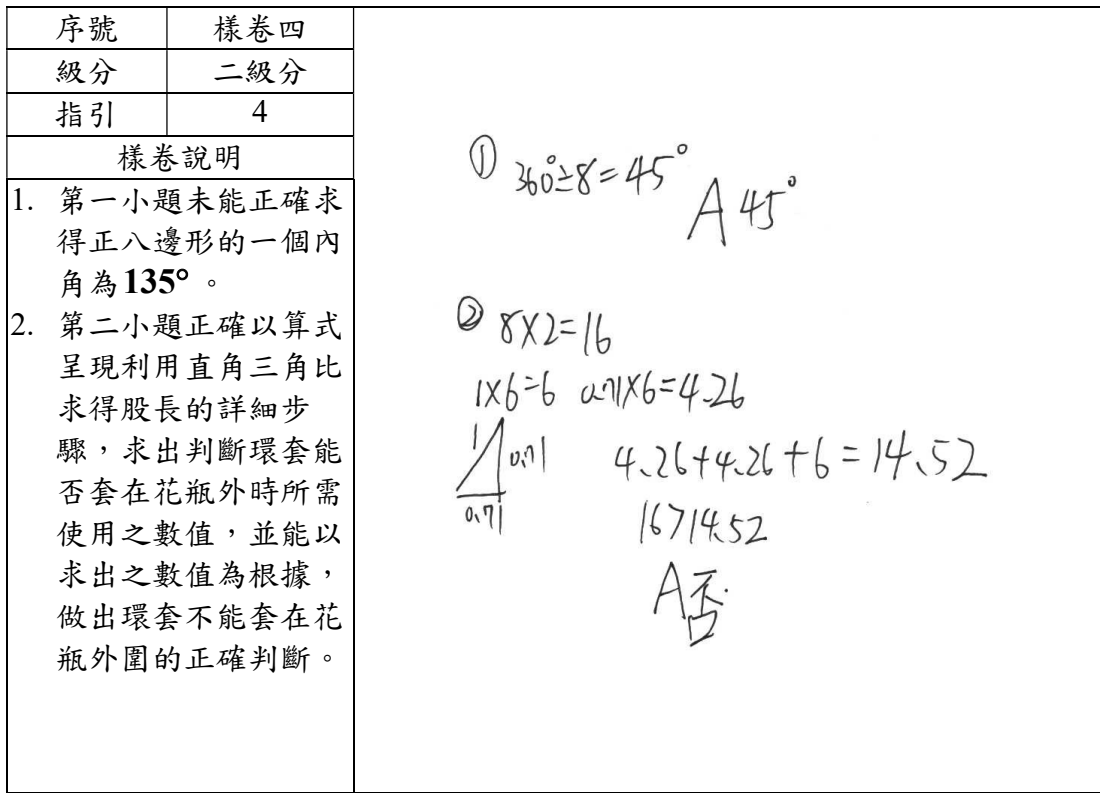 序號 樣卷四
級分 二級分
指引 4
樣卷說明
1. 第一小題未能正確求
得正八邊形的一個內
角為135°。
2. 第二小題正確以算式
呈現利用直角三角比
求得股長的詳細步
驟，求出判斷環套能
否套在花瓶外時所需
使用之數值，並能以
求出之數值為根據，
做出環套不能套在花
瓶外圍的正確判斷。
① 360°÷8=45°
A 45°
② 8×2=16
1×6=6 0.71×6=4.26
1 0.71
0.71
4.26+4.26+6=14.52
16>14.52
A否.